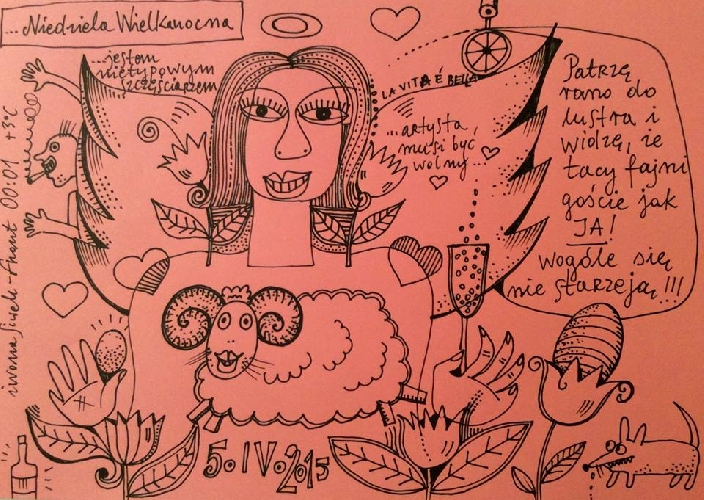 ...Niedziela Wielkanocna
...jestem
nietypowym
szczęściarzem
LA VITA È BELLA
...artysta,
musi być
wolny...
Patrzę
rano do
lustra i
widzę, że
tacy fajni
goście jak
JA!
wogóle się
nie starzeją!!!
iwona 00:01 +3°C
5.IV.2015